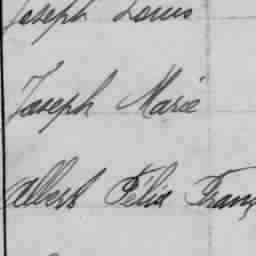 Joseph Louis
Joseph Marie
Albert Félix Franç